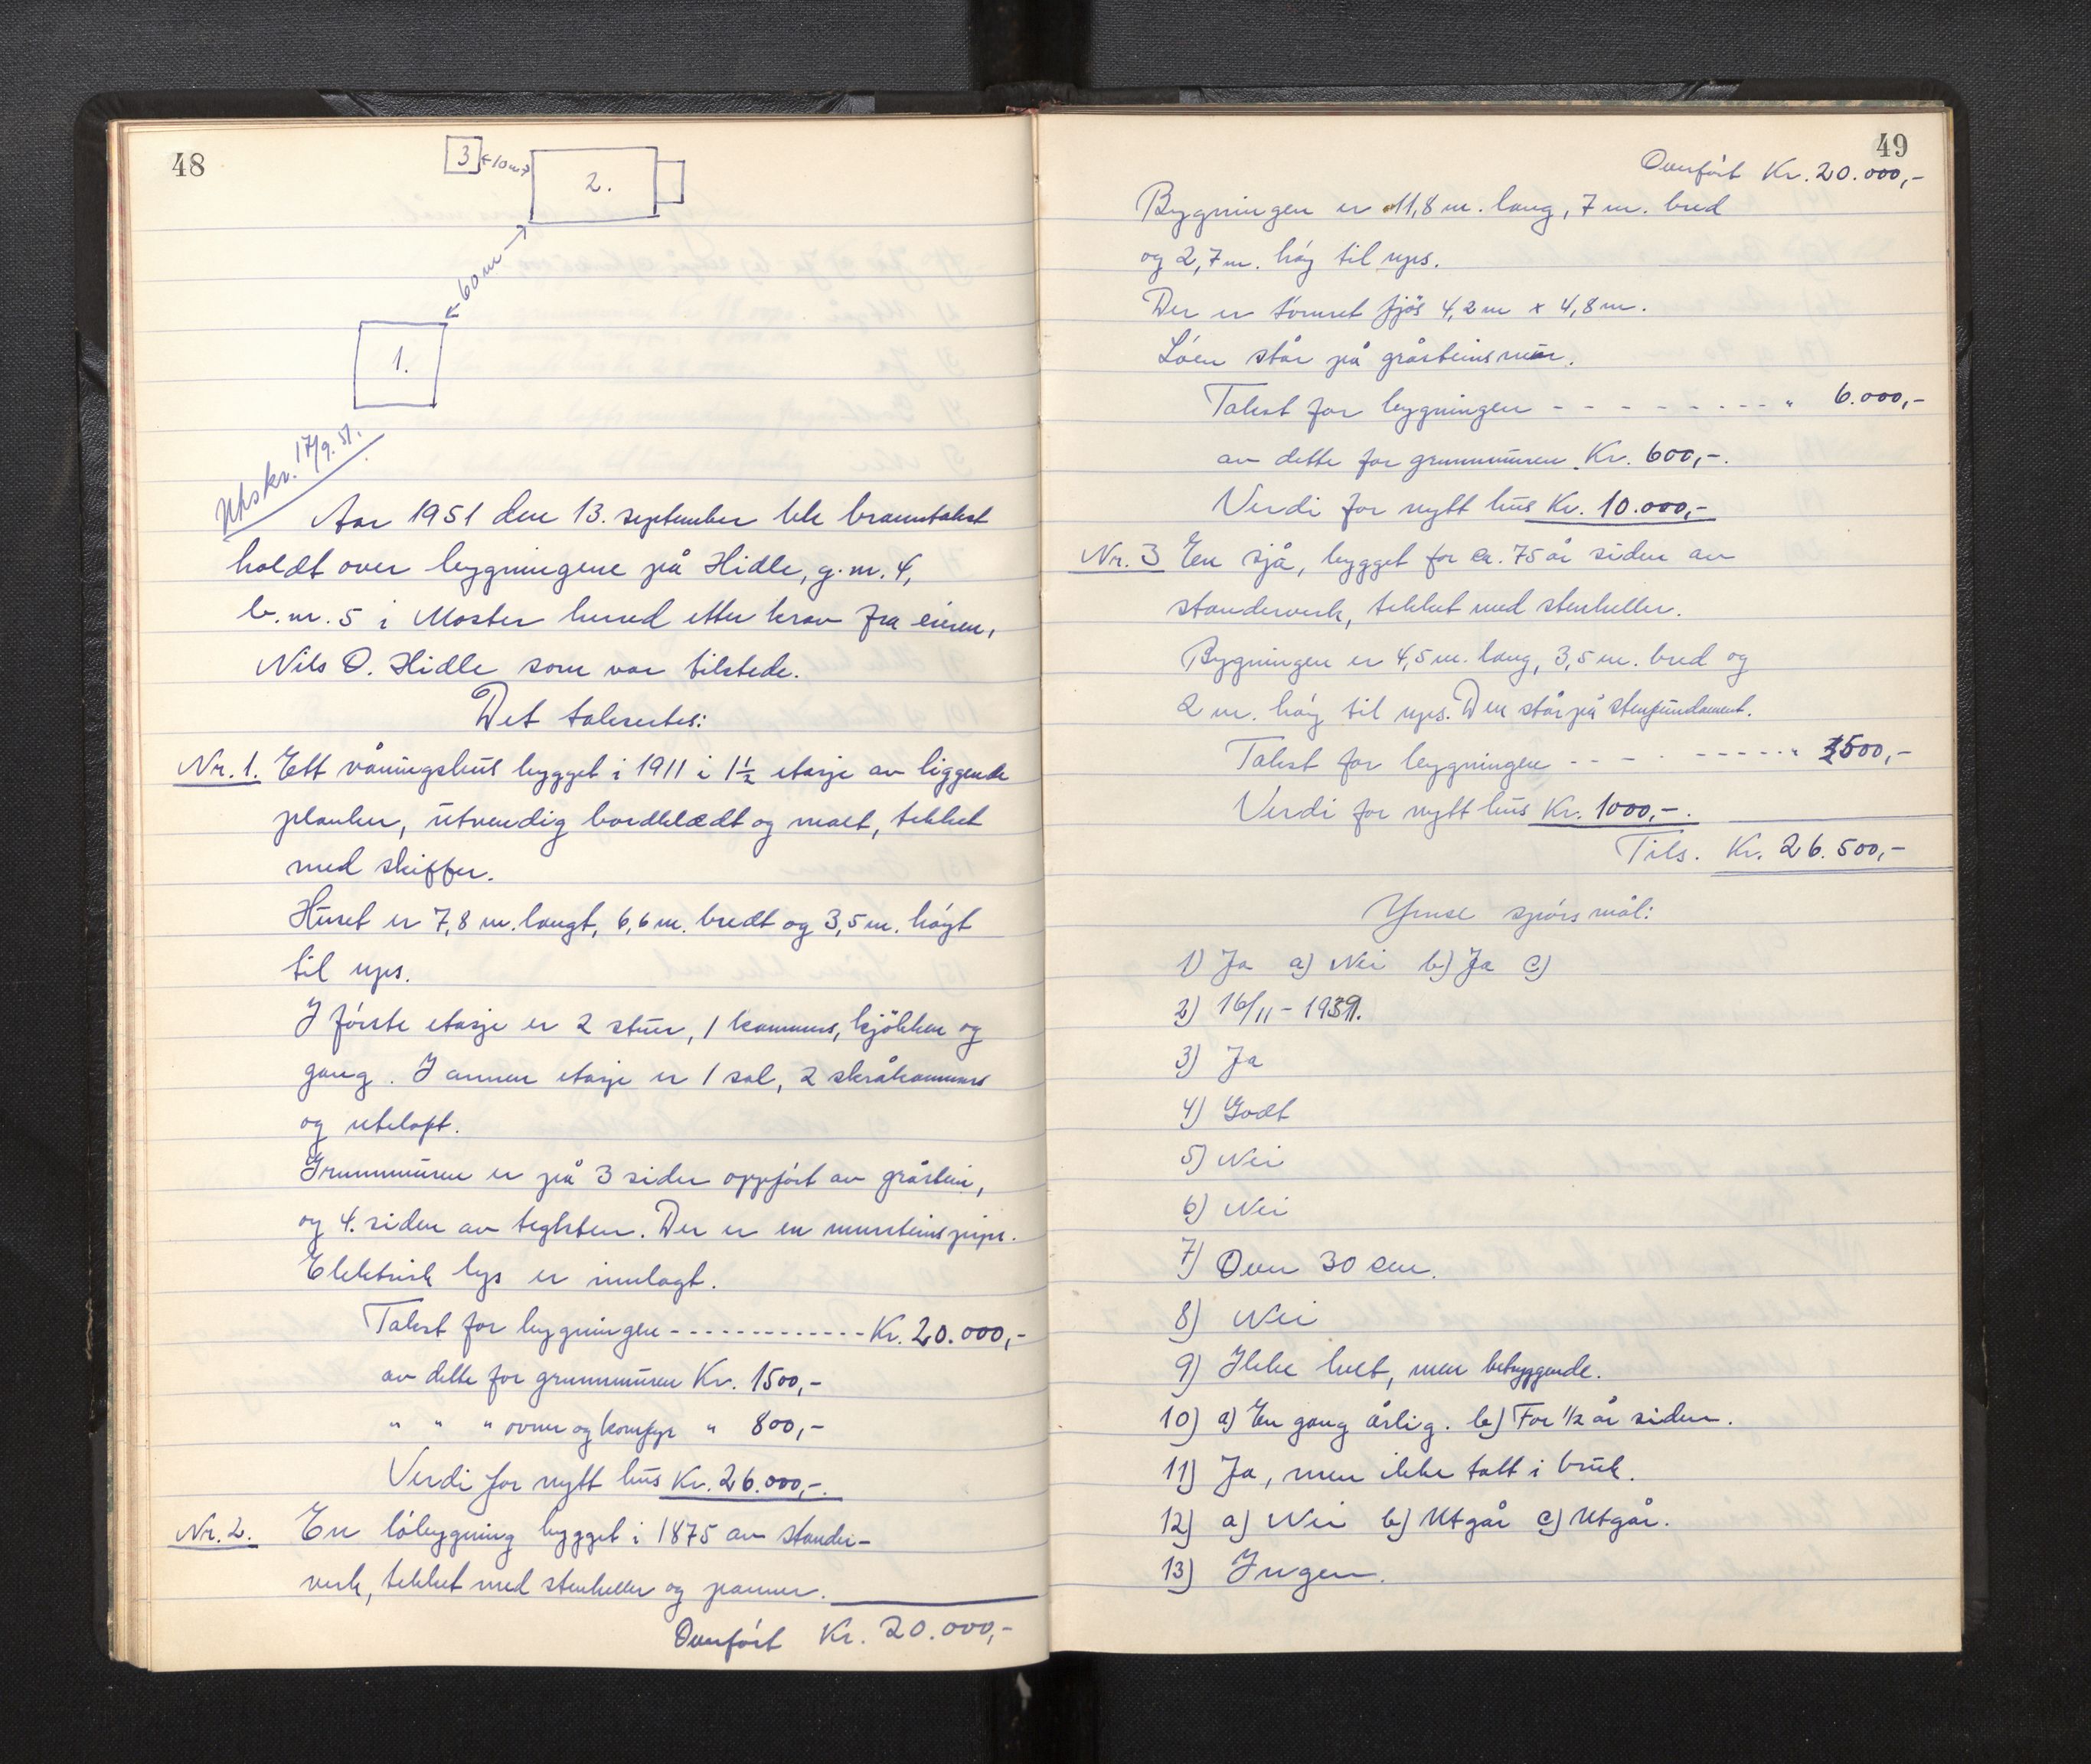 48
3
←10m→
2.
←60m→
1.
Utskr. 17/9.51.
Aar 1951 den 13. september ble branntakst
holdt over bygningene på Hidle, g.nr. 4,
b.nr. 5 i Moster herred etter krav fra eieren,
Nils O. Hidle som var tilstede.
Det taksertes:
Nr. 1. Ett våningshus bygget i 1911 i 1½ etasje av liggende
planker, utvendig bordklædt og malt, tekket
med skiffer.
Huset er 7,8 m. langt, 6,6 m. bredt og 3,5 m. høgt
til ups.
I første etasje er 2 stuer, 1 kammers, kjøkken og
gang. I annen etasje er 1 sal, 2 skråkammers
og uteloft.
Grunnmuren er på 3 sider oppført av gråstein,
og 4. siden av teglsten. Der er en mursteinspipe.
Elektrisk lys er innlagt.
Takst for bygningen - - - - - - - - - - - - - Kr. 20.000,-
av dette for grunnmuren Kr. 1500,-
" " " ovner og komfyr " 800,-
Verdi for nytt hus Kr. 26.000,-.
Nr. 2. En løbygning bygget i 1875 av stander-
verk, tekket med stenheller og panner.
Overført Kr. 20.000,-
49
Overført Kr. 20.000,-
Bygningen er 11,8 m. lang, 7 m. bred
og 2,7 m. høg til ups.
Der er tømret fjøs 4,2 m x 4,8 m.
Løen står på gråsteinsmur.
Takst for bygningen - - - - - - - - - " 6.000,-
av dette for grunnmuren Kr. 600,-.
Verdi for nytt hus Kr. 10.000,-
Nr. 3 En sjå, bygget for ca. 75 år siden av
standerverk, tekket med stenheller.
Bygningen er 4,5 m. lang, 3,5 m. bred og
2 m. høg til ups. Den står på stenfundament.
Takst for bygningen - - - - - - - - - " 500,-
Verdi for nytt hus Kr. 1000,-.
Tils. Kr. 26.500,-
Ymse spørsmål:
1) Ja a) Nei b) Ja c)
2) 16/11 - 1939.
3) Ja
4) Godt
5) Nei
6) Nei
7) Over 30 cm.
8) Nei
9) Ikke luet, men betryggende.
10) a) En gang årlig. b) For ½ år siden.
11) Ja, men ikke tatt i bruk.
12) a) Nei b) Utgår c) Utgår.
13) Ingen.